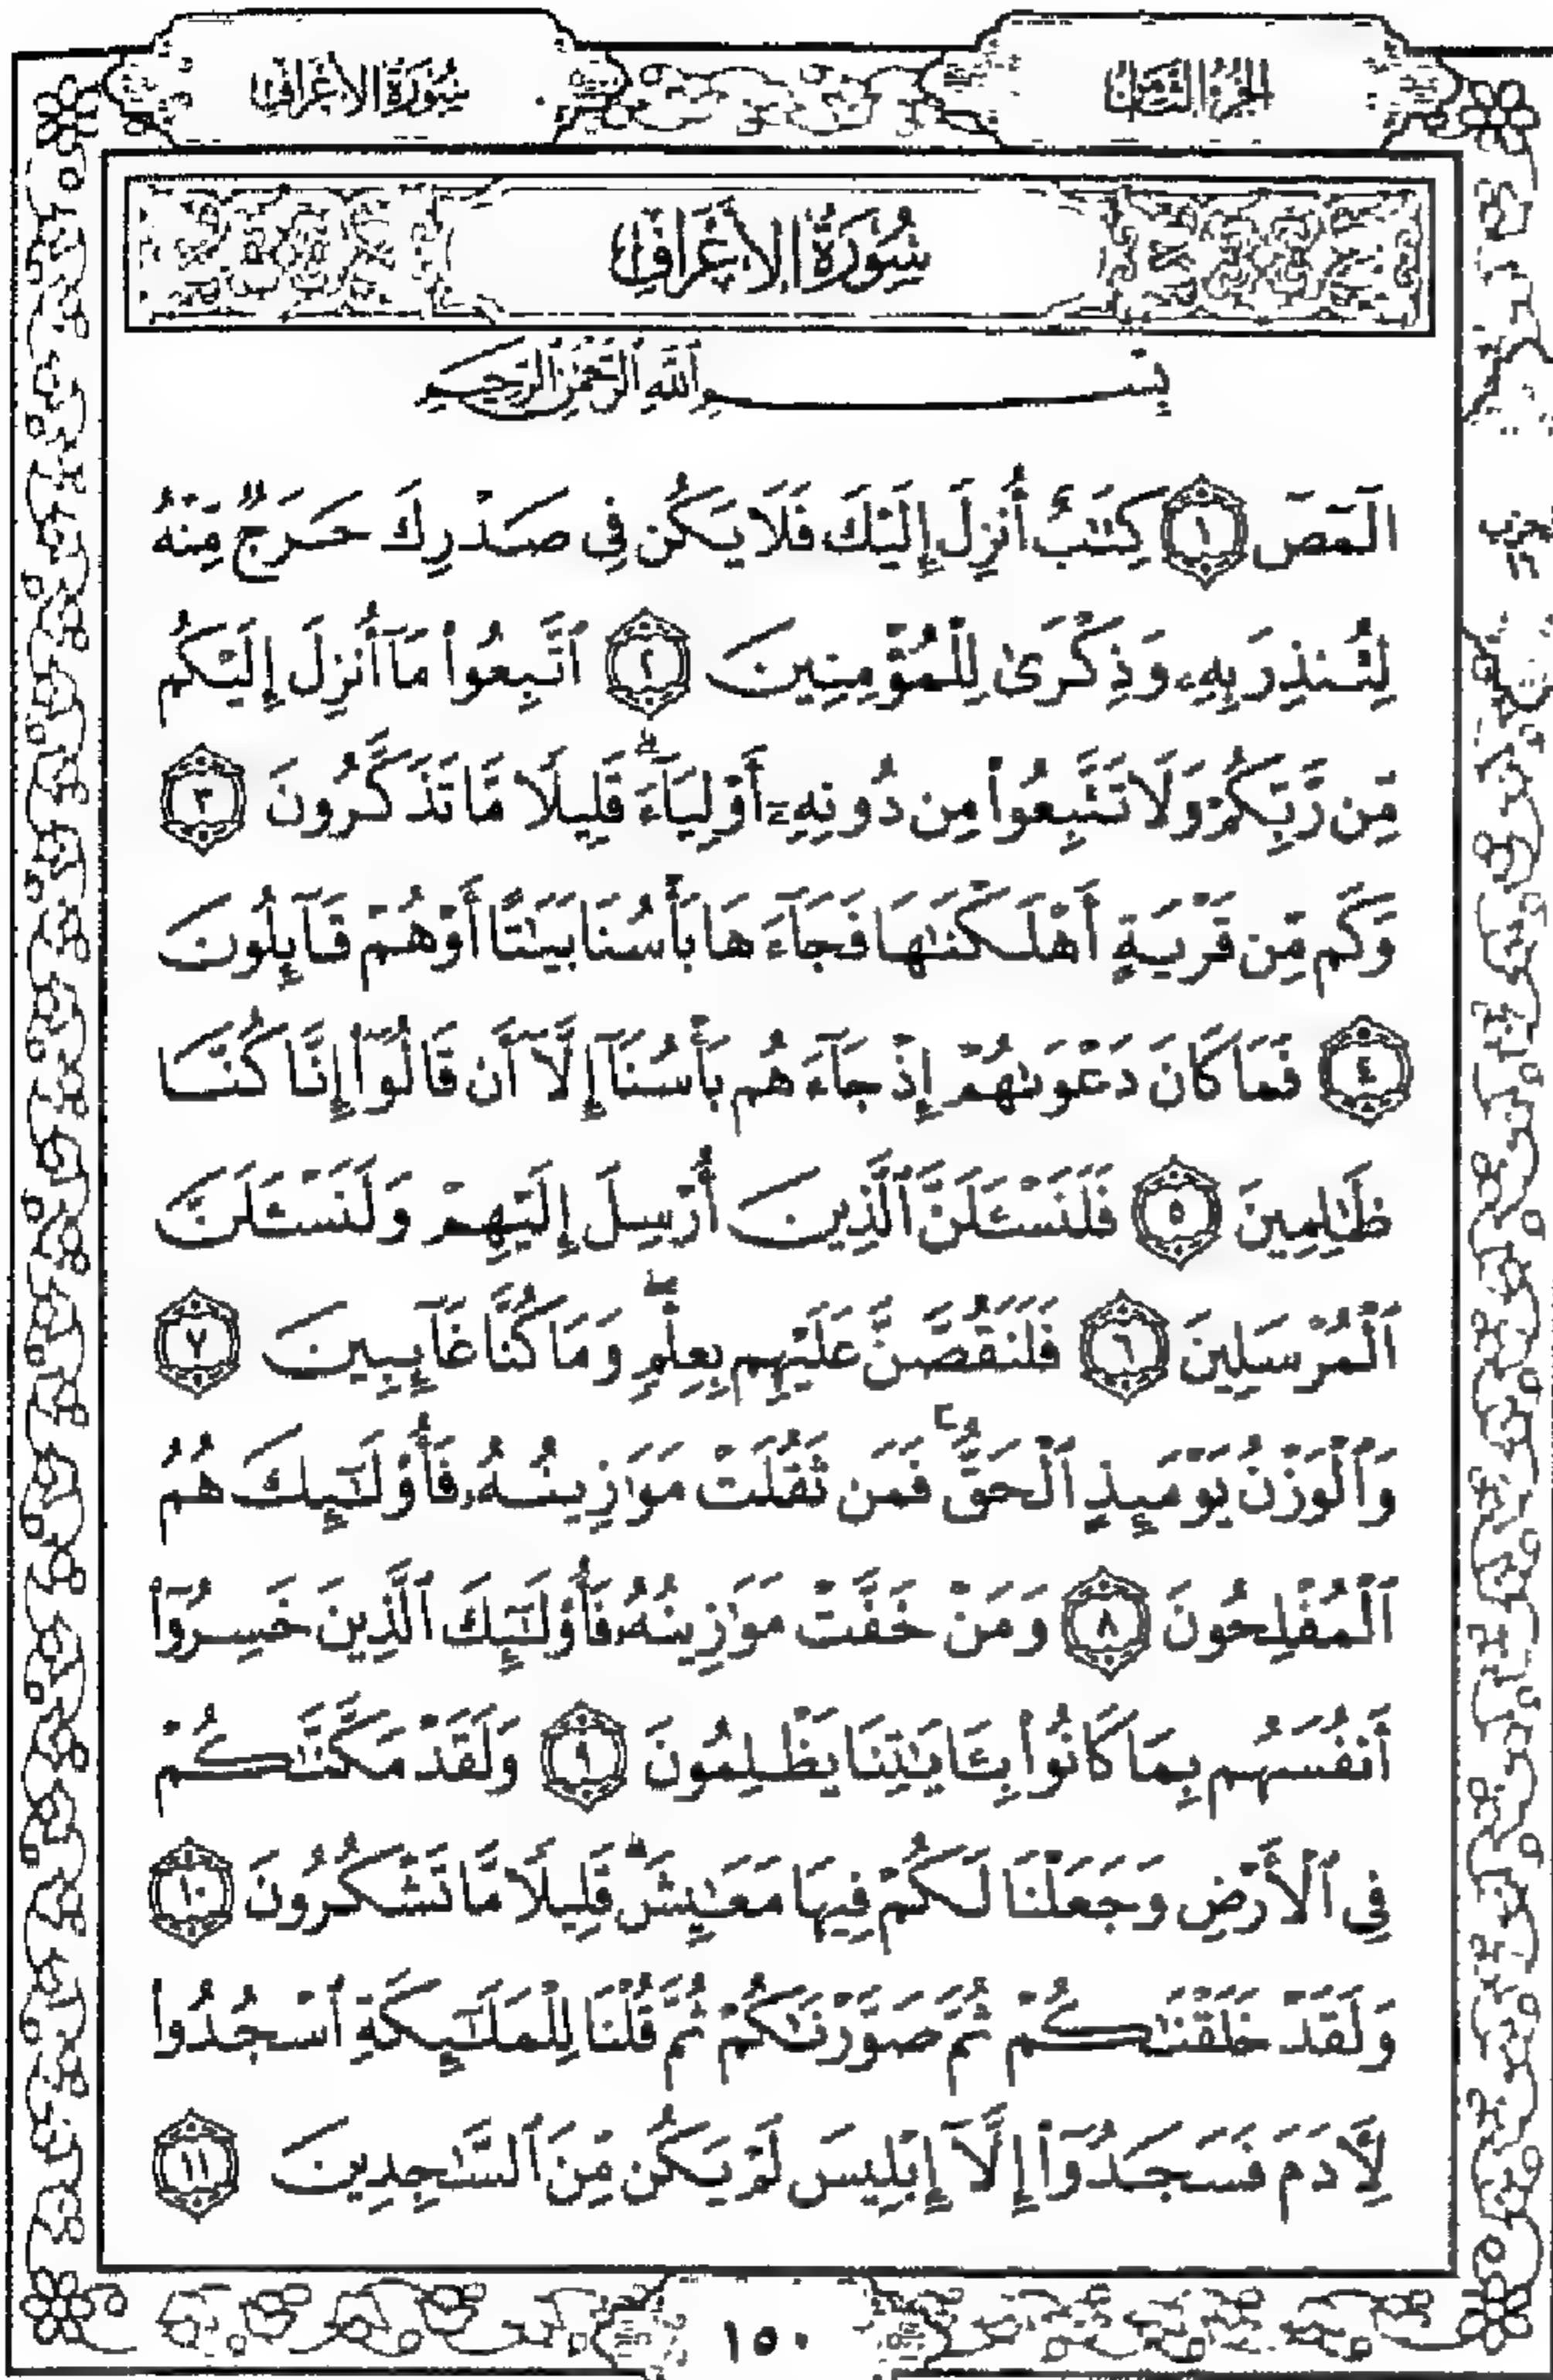 الجزء الثامن
سورة الأعراف
سُورَةُ الأَعْرَافِ
بِسْمِ ٱللَّهِ ٱلرَّحْمَٰنِ ٱلرَّحِيمِ
الٓمٓصٓ ١ كِتَٰبٌ أُنزِلَ إِلَيْكَ فَلَا يَكُن فِى صَدْرِكَ حَرَجٌ مِّنْهُ
لِتُنذِرَ بِهِۦ وَذِكْرَىٰ لِلْمُؤْمِنِينَ ٢ ٱتَّبِعُوا۟ مَآ أُنزِلَ إِلَيْكُم
مِّن رَّبِّكُمْ وَلَا تَتَّبِعُوا۟ مِن دُونِهِۦٓ أَوْلِيَآءَ ۗ قَلِيلًا مَّا تَذَكَّرُونَ ٣
وَكَم مِّن قَرْيَةٍ أَهْلَكْنَٰهَا فَجَآءَهَا بَأْسُنَا بَيَٰتًا أَوْ هُمْ قَآئِلُونَ
٤ فَمَا كَانَ دَعْوَىٰهُمْ إِذْ جَآءَهُم بَأْسُنَآ إِلَّآ أَن قَالُوٓا۟ إِنَّا كُنَّا
ظَٰلِمِينَ ٥ فَلَنَسْـَٔلَنَّ ٱلَّذِينَ أُرْسِلَ إِلَيْهِمْ وَلَنَسْـَٔلَنَّ
ٱلْمُرْسَلِينَ ٦ فَلَنَقُصَّنَّ عَلَيْهِم بِعِلْمٍ ۖ وَمَا كُنَّا غَآئِبِينَ ٧
وَٱلْوَزْنُ يَوْمَئِذٍ ٱلْحَقُّ ۚ فَمَن ثَقُلَتْ مَوَٰزِينُهُۥ فَأُو۟لَٰٓئِكَ هُمُ
ٱلْمُفْلِحُونَ ٨ وَمَنْ خَفَّتْ مَوَٰزِينُهُۥ فَأُو۟لَٰٓئِكَ ٱلَّذِينَ خَسِرُوٓا۟
أَنفُسَهُم بِمَا كَانُوا۟ بِـَٔايَٰتِنَا يَظْلِمُونَ ٩ وَلَقَدْ مَكَّنَّٰكُمْ
فِى ٱلْأَرْضِ وَجَعَلْنَا لَكُمْ فِيهَا مَعَٰيِشَ ۗ قَلِيلًا مَّا تَشْكُرُونَ ١٠
وَلَقَدْ خَلَقْنَٰكُمْ ثُمَّ صَوَّرْنَٰكُمْ ثُمَّ قُلْنَا لِلْمَلَٰٓئِكَةِ ٱسْجُدُوا۟
لِـَٔادَمَ فَسَجَدُوٓا۟ إِلَّآ إِبْلِيسَ لَمْ يَكُن مِّنَ ٱلسَّٰجِدِينَ ١١
حزب
١٥٠